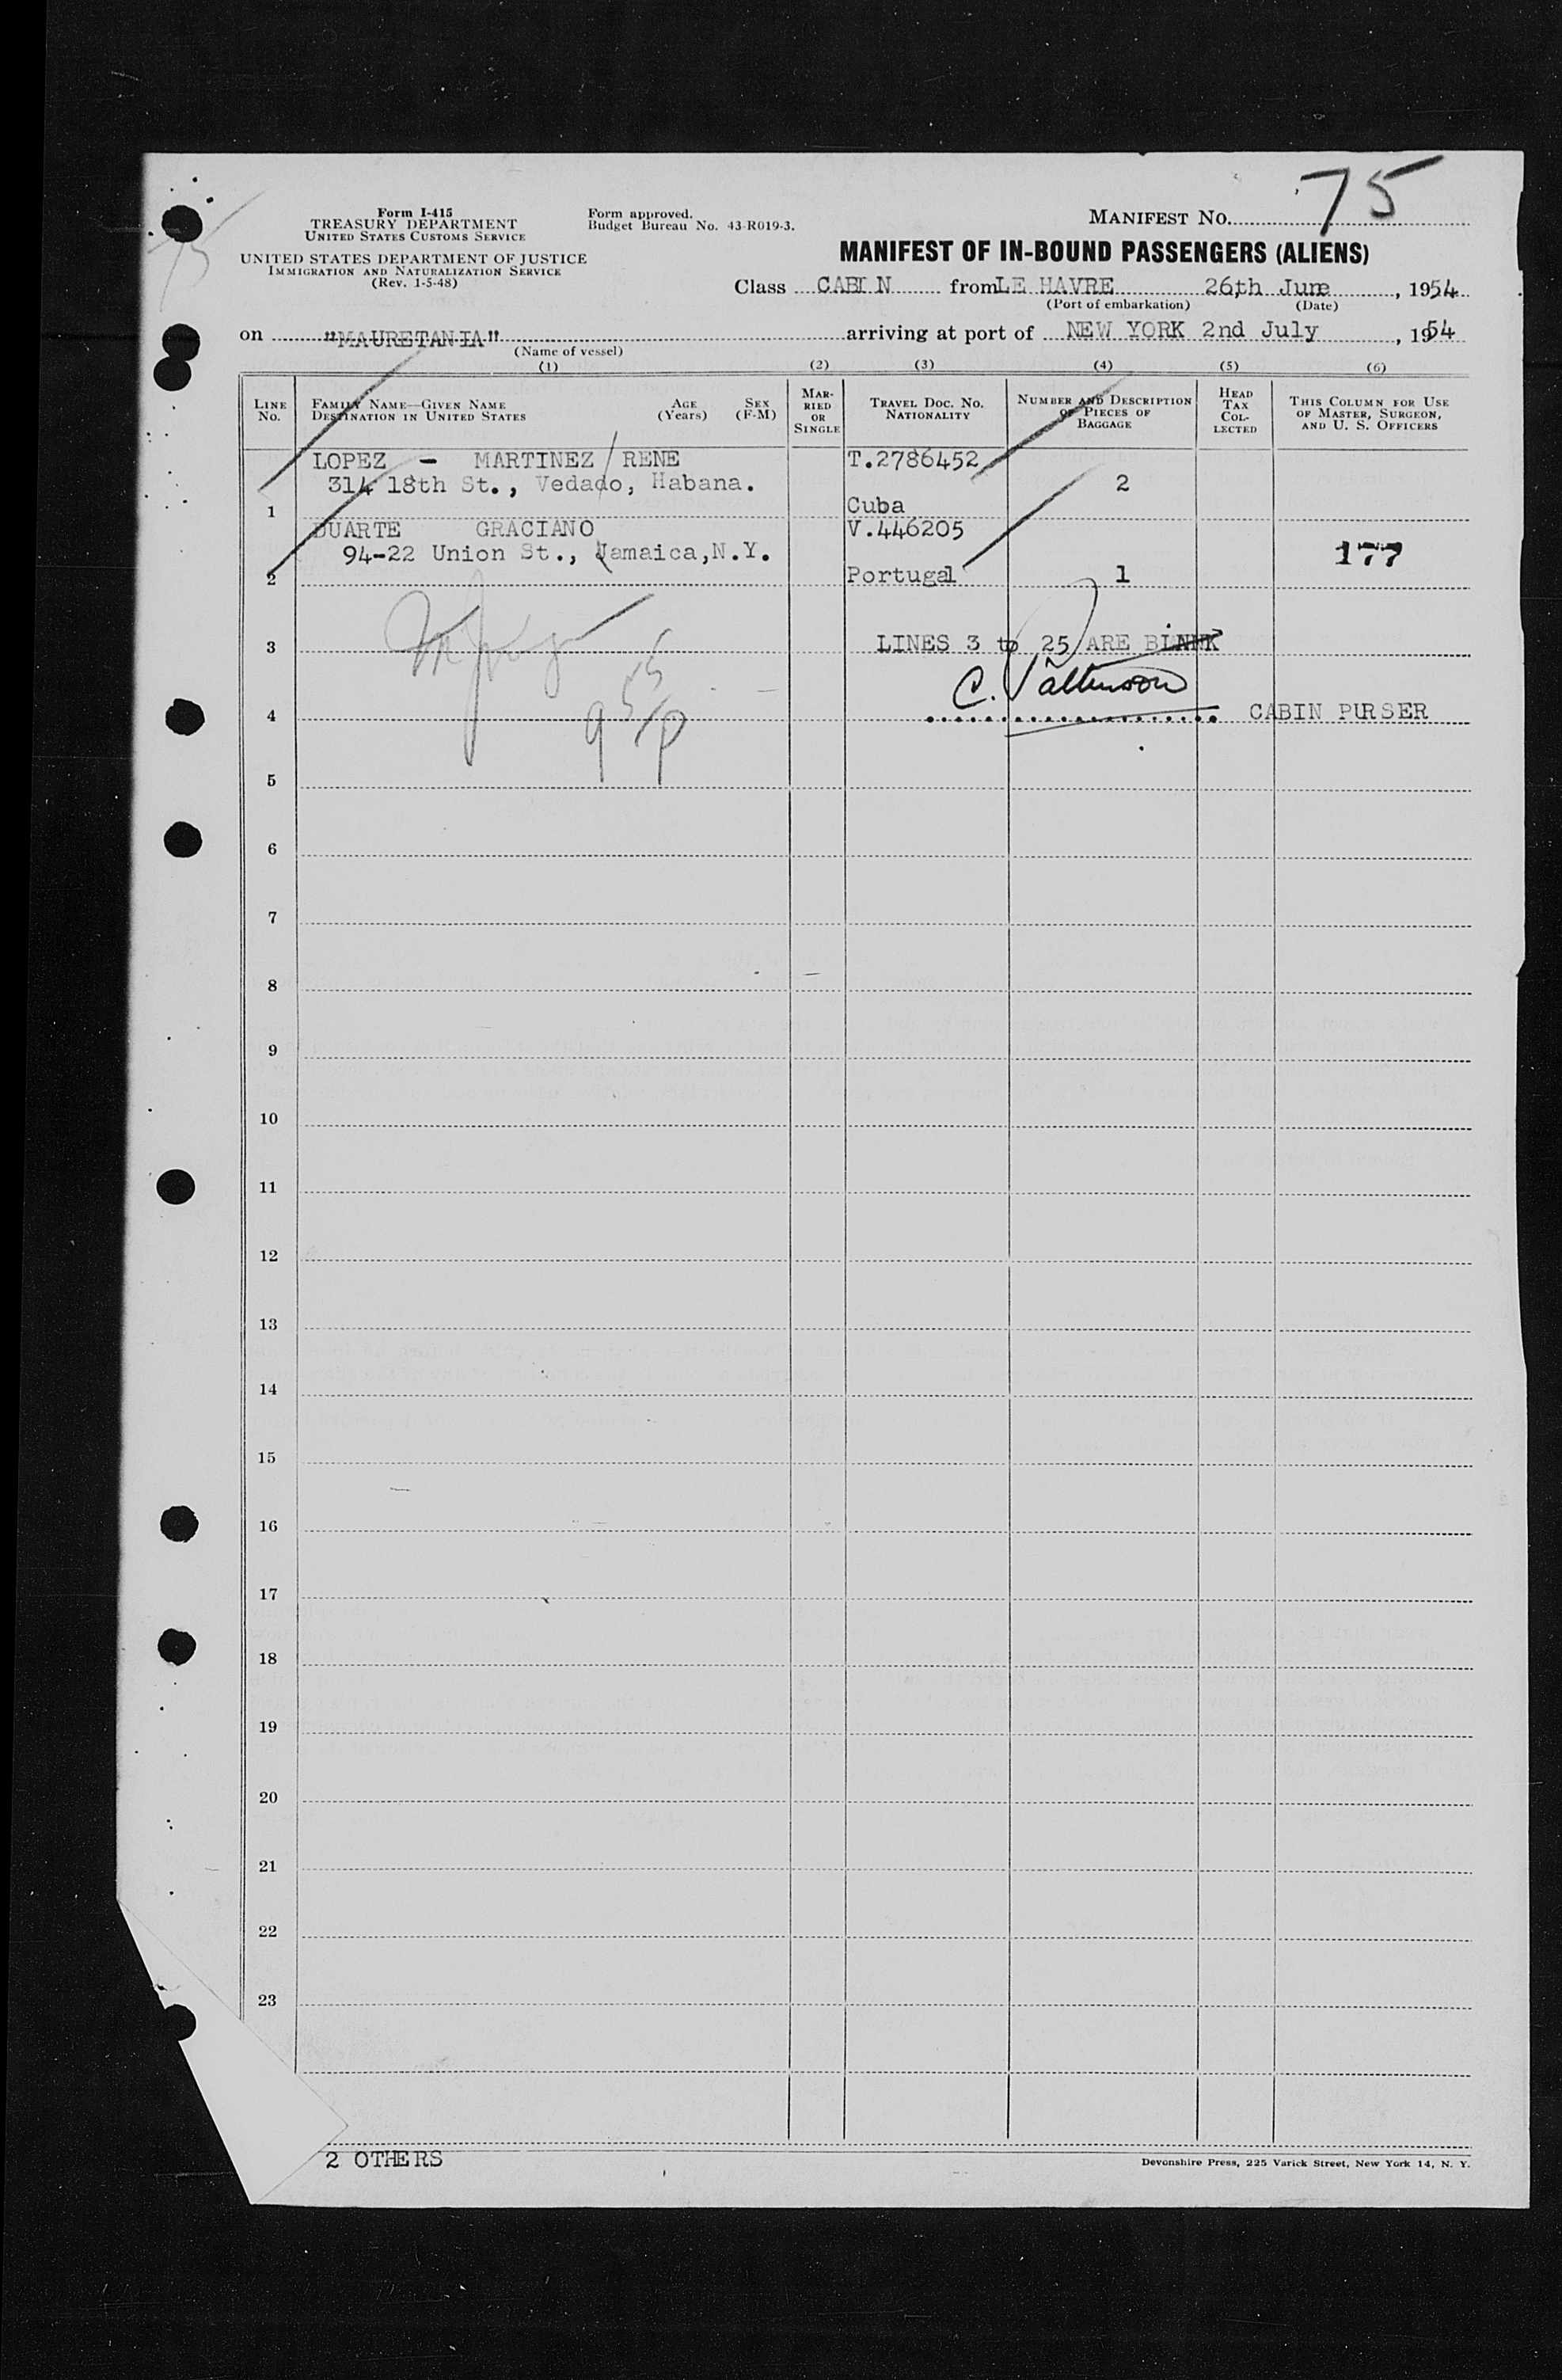 75
Form I-415
TREASURY DEPARTMENT
UNITED STATES CUSTOMS SERVICE
UNITED STATES DEPARTMENT OF JUSTICE
IMMIGRATION AND NATURALIZATION SERVICE
(Rev. 1-5-48)
Form approved.
Budget Bureau No. 43-R019-3.
MANIFEST NO. 75
MANIFEST OF IN-BOUND PASSENGERS (ALIENS)
Class CABIN from LE HAVRE 26th June, 1954
(Port of embarkation) (Date)
on "MAURETANIA" arriving at port of NEW YORK 2nd July, 1954
(Name of vessel)
(1) (2) (3) (4) (5) (6)
LINE NO.
FAMILY NAME—GIVEN NAME
DESTINATION IN UNITED STATES
AGE (Years)
SEX (F-M)
MARRIED OR SINGLE
TRAVEL DOC. NO. NATIONALITY
NUMBER AND DESCRIPTION OF PIECES OF BAGGAGE
HEAD TAX COLLECTED
THIS COLUMN FOR USE OF MASTER, SURGEON, AND U. S. OFFICERS
LOPEZ - MARTINEZ RENE T.2786452
314 18th St., Vedado, Habana. 2
1 Cuba
DUARTE GRACIANO V.446205
94-22 Union St., Jamaica,N.Y. 177
2 Portugal 1
3 LINES 3 to 25 ARE BLANK
955/p
4 CABIN PURSER
5
6
7
8
9
10
11
12
13
14
15
16
17
18
19
20
21
22
23
2 OTHERS
Devonshire Press, 225 Varick Street, New York 14, N. Y.